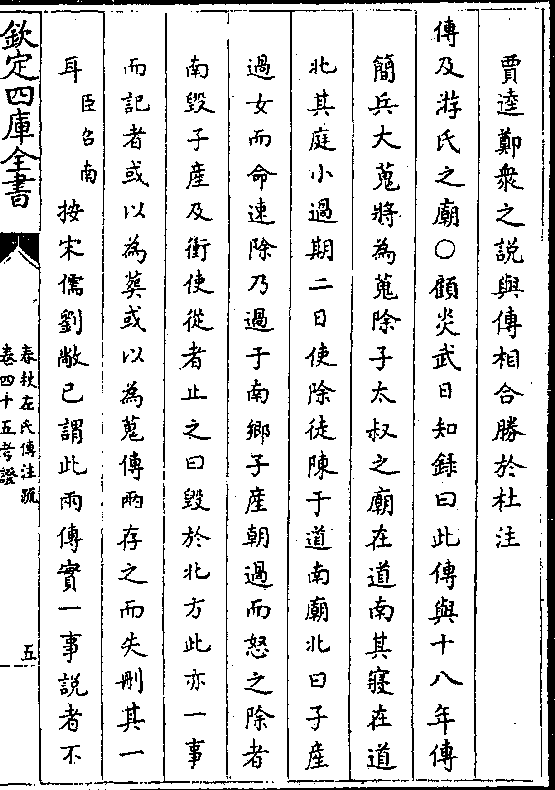 賈逵鄭衆之説與傳相合勝於杜注
傳及游氏之廟○顧炎武日知録曰此傳與十八年傳
簡兵大蒐將為蒐除子太叔之廟在道南其寢在道
北其庭小過期二日使除徒陳于道南廟北曰子產
過女而命速除乃過于南鄉子產朝過而怒之除者
南毀子產及衝使從者止之曰毀於北方此亦一事
而記者或以為葬或以為蒐傳兩存之而失刪其一
耳臣召南按宋儒劉敞已謂此兩傳實一事說者不
欽定四庫全書
春秋左氏傳注疏
卷四十五考證
五